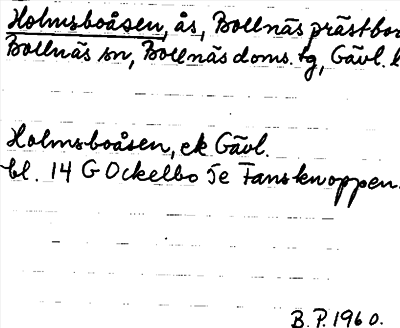 Holmsboåsen, ås, Bollnäs prästbo
Bollnäs sn, Bollnäs doms. tg, Gävl. l
Holmsboåsen, ek Gävl.
bl. 14 G Ockelbo 5e Fansknoppen.
B.P. 1960.